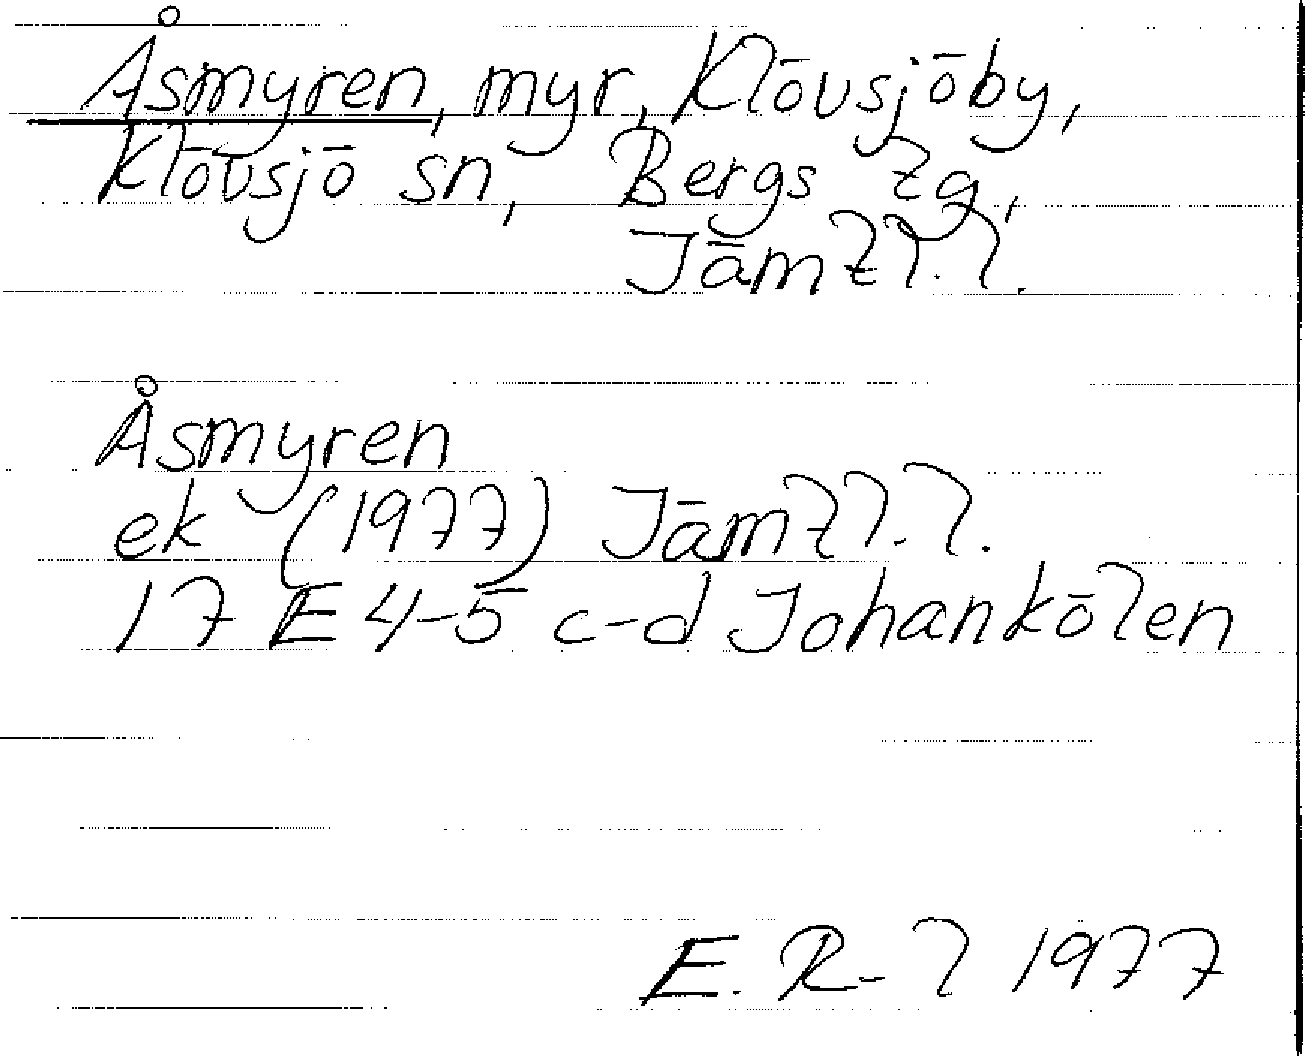 Åsmyren, myr, Klövsjöby,
Klövsjö sn, Bergs tg,
Jämtl.l.
Åsmyren
ek (1977) Jämtl.l.
17 E 4-5 c-d Johankölen
E. R-l 1977